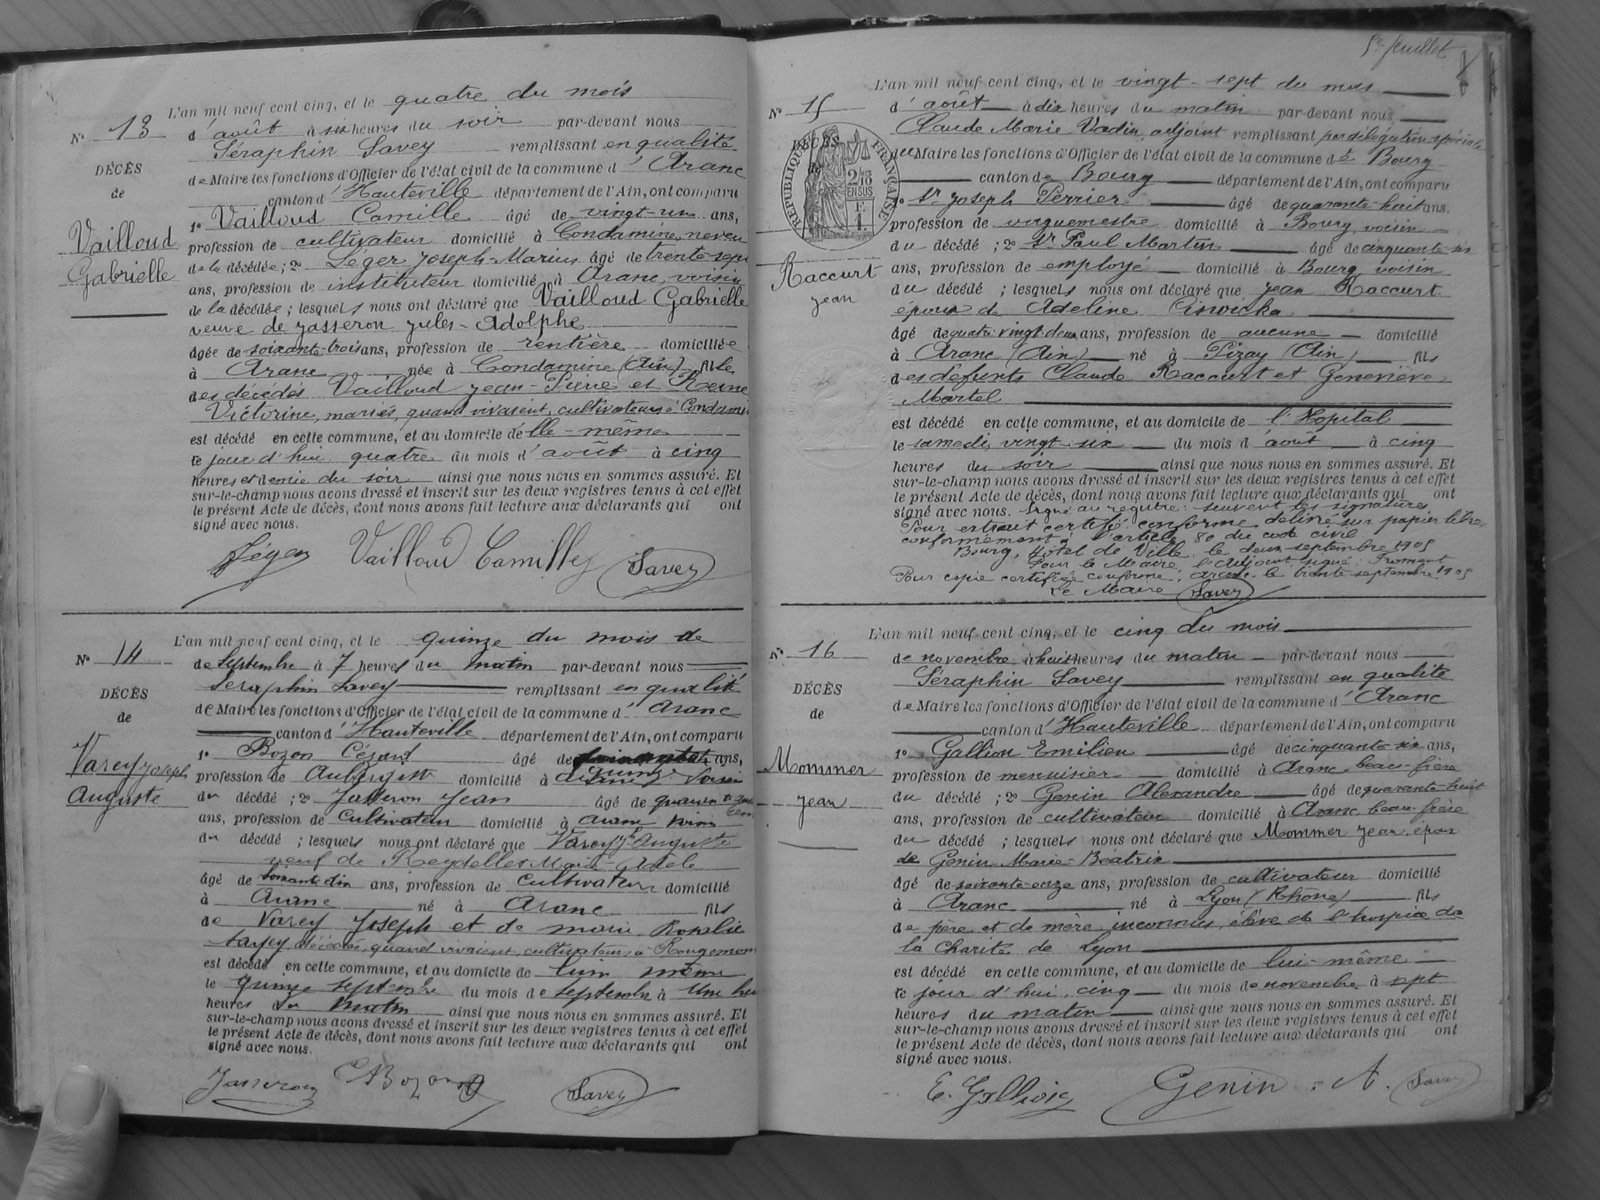 L'an mil neuf cent cinq, et le quatre du mois
N° 13 d'août à six heures du soir par-devant nous
Séraphin Savey remplissant en qualité
DÉCÈS
de Maire les fonctions d'Officier de l'état civil de la commune d'Aranc
de
canton d'Hauteville département de l'Ain, ont comparu
Vailloud
Gabrielle
1° Vailloud Camille âgé de vingt-un ans,
profession de cultivateur domicilié à Condamine, neveu
de la décédée ; 2° Léger Joseph-Marius âgé de trente-sept
ans, profession de instituteur domicilié à Aranc, voisin
de la décédée ; lesquels nous ont déclaré que Vailloud Gabrielle
veuve de Jasseron Jules-Adolphe
âgée de soixante-trois ans, profession de rentière domiciliée
à Aranc née à Condamine (Ain) fille
des décédés Vailloud Jean-Pierre et Reine
Victorine, mariés, quand vivaient, cultivateurs à Condamine
est décédé en cette commune, et au domicile d'elle-même
le jour d'hui quatre du mois d'août à cinq
heures et demie du soir ainsi que nous nous en sommes assuré. Et
sur-le-champ nous avons dressé et inscrit sur les deux registres tenus à cet effet
le présent Acte de décès, dont nous avons fait lecture aux déclarants qui ont
signé avec nous.
Léger Vailloud Camille Savey
L'an mil neuf cent cinq, et le quinze du mois de
N° 14 de Septembre à 7 heures du matin par-devant nous
Séraphin Savey remplissant en qualité
DÉCÈS
de Maire les fonctions d'Officier de l'état civil de la commune d'Aranc
de
canton d'Hauteville département de l'Ain, ont comparu
Varey Joseph
Auguste
1° Bozon Césard âgé de ans,
profession de Aubergiste domicilié à
du décédé ; 2° Jasseron Jean âgé de
ans, profession de Cultivateur domicilié à Aranc voisin
du décédé ; lesquels nous ont déclaré que Varey Jh Auguste
veuf de Reydellet Marie Adèle
âgé de soixante dix ans, profession de Cultivateur domicilié
à Aranc né à Aranc fils
de Varey Joseph et de Marie Rosalie
décédés, quand vivaient, cultivateurs à Rougemont
est décédé en cette commune, et au domicile de lui même
le quinze septembre du mois de septembre à une heure
heures du matin ainsi que nous nous en sommes assuré. Et
sur-le-champ nous avons dressé et inscrit sur les deux registres tenus à cet effet
le présent Acte de décès, dont nous avons fait lecture aux déclarants qui ont
signé avec nous.
Jasseron C Bozon Savey
5e feuillet
L'an mil neuf cent cinq, et le vingt-sept du mois
N° 15 d'août à dix heures du matin par-devant nous
Claude Marie Vadin, adjoint remplissant par délégation spéciale
DÉCÈS
RÉPUBLIQUE FRANÇAISE
2/10 EN SUS
du Maire les fonctions d'Officier de l'état civil de la commune de Bourg
canton de Bourg département de l'Ain, ont comparu
1° Sr Joseph Perrier âgé de quarante-huit ans,
profession de vaguemestre domicilié à Bourg voisin
du décédé ; 2° Sr Paul Martin âgé de cinquante-six
Raccurt
Jean
ans, profession de employé domicilié à Bourg voisin
du décédé ; lesquels nous ont déclaré que Jean Raccurt
époux de Adeline
âgé de quatre vingt deux ans, profession de aucune domicilié
à Aranc (Ain) né à Pizay (Ain) fils
des défunts Claude Raccurt et Geneviève
Martel
est décédé en cette commune, et au domicile de l'Hopital
le samedi vingt-six du mois d'août à cinq
heures du soir ainsi que nous nous en sommes assuré. Et
sur-le-champ nous avons dressé et inscrit sur les deux registres tenus à cet effet
le présent Acte de décès, dont nous avons fait lecture aux déclarants qui ont
signé avec nous. Signé au registre : suivent les signatures
Pour extrait certifié conforme délivré sur papier libre
conformément à l'article 80 du code civil
Bourg, Hôtel de Ville le deux septembre 1905
Pour le Maire, l'adjoint signé : Fromont
Pour copie certifiée conforme, Aranc le trente septembre 1905
Le Maire Savey
L'an mil neuf cent cinq, et le cinq du mois
N° 16 de novembre à huit heures du matin par-devant nous
Séraphin Savey remplissant en qualité
DÉCÈS
de Maire les fonctions d'Officier de l'état civil de la commune d'Aranc
de
canton d'Hauteville département de l'Ain, ont comparu
Mommer
Jean
1° Gallion Emilien âgé de cinquante-six ans,
profession de menuisier domicilié à Aranc beau-frère
du décédé ; 2° Genin Alexandre âgé de quarante-huit
ans, profession de cultivateur domicilié à Aranc beau-frère
du décédé ; lesquels nous ont déclaré que Mommer Jean, époux
de Genin Marie-Béatrix
âgé de soixante-onze ans, profession de cultivateur domicilié
à Aranc né à Lyon (Rhône) fils
de père et de mère inconnus, élève de l'hospice de
la Charité de Lyon
est décédé en cette commune, et au domicile de lui-même
le jour d'hui, cinq du mois de novembre à sept
heures du matin ainsi que nous nous en sommes assuré. Et
sur-le-champ nous avons dressé et inscrit sur les deux registres tenus à cet effet
le présent Acte de décès, dont nous avons fait lecture aux déclarants qui ont
signé avec nous.
E. Gallion Genin . A. Savey